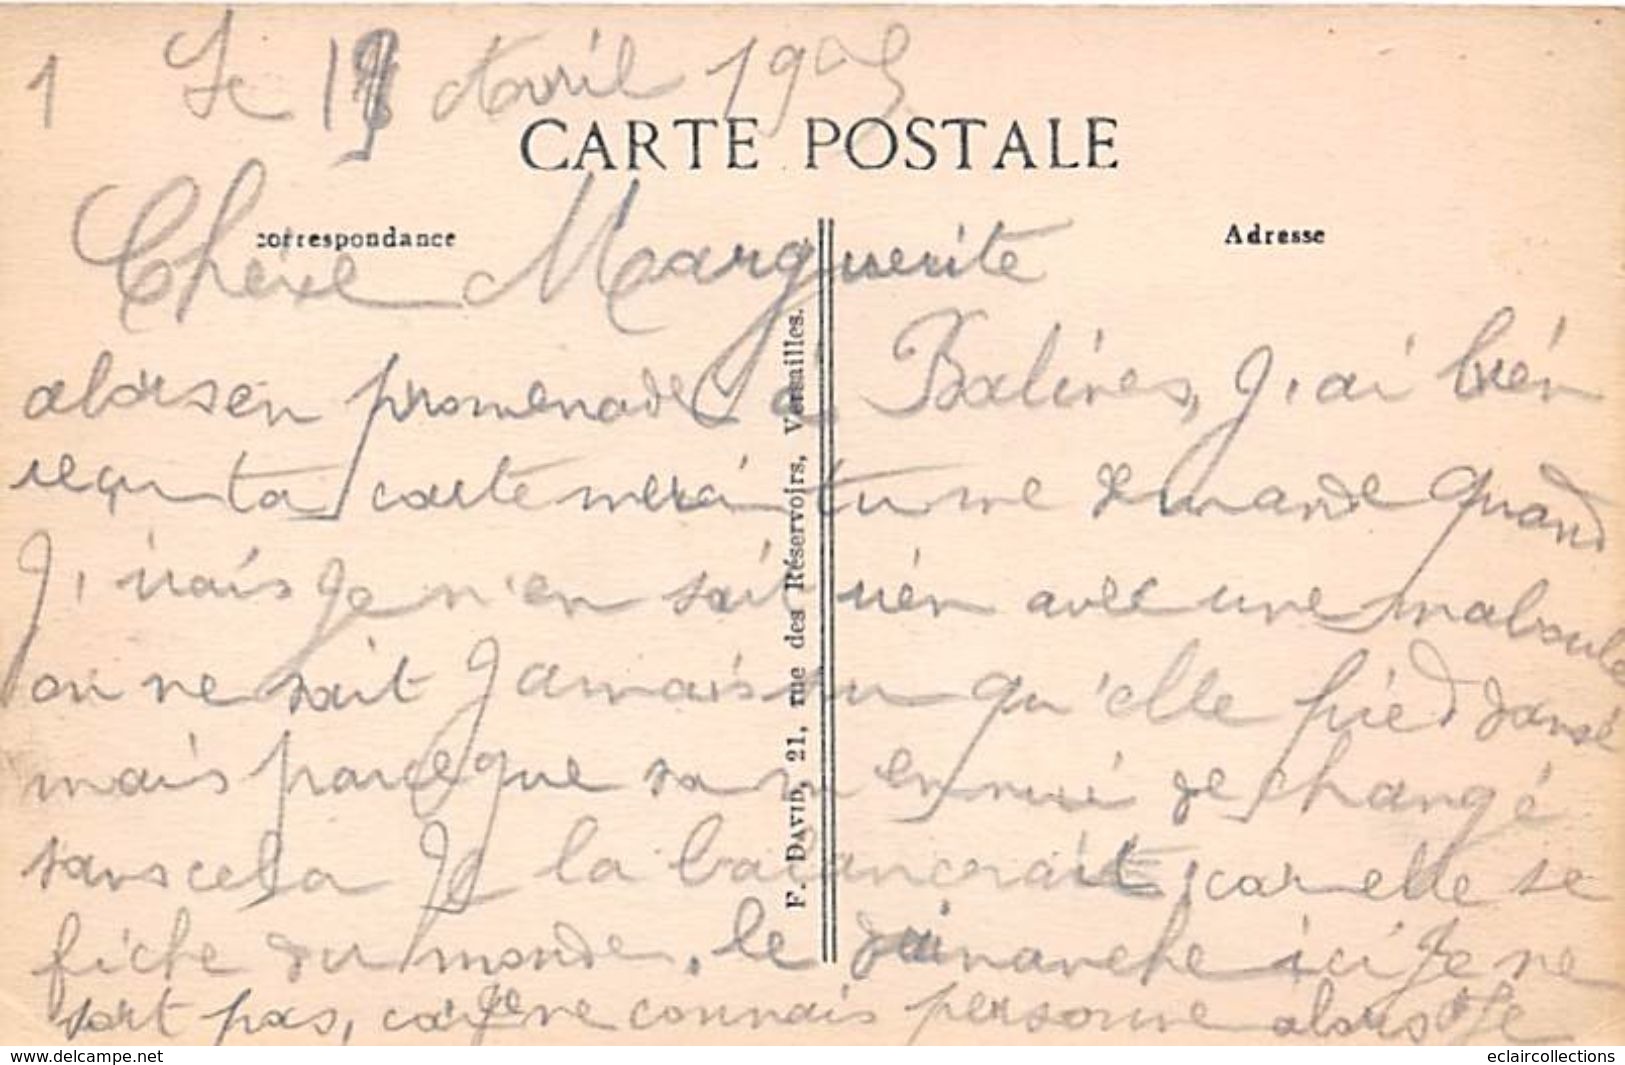 1 Le 1 Avril 19
CARTE POSTALE
correspondance
Adresse
Chère Marguerite
alorsen promenade à Balines, J'ai bien
reçu ta carte merci tu me demande quand
J'irais Je n'en sait rien avec une maboule
on ne sait Jamais su qu'elle pied dansé
mais parceque sa m'ennui de changé
sanscela Je la balancerait, car elle se
fiche du monde, le dimanche ici Je ne
sort pas, car Je ne connais personne alors Je
F. DAVID, 21, rue des Réservoirs, Versailles.
www.delcampe.net
eclaircollections